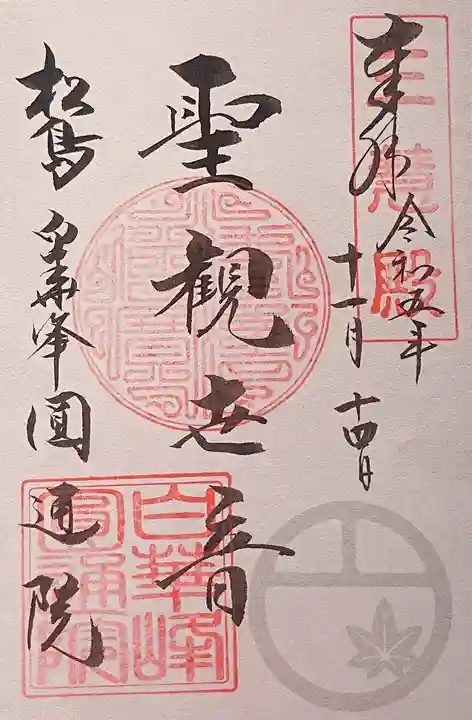 奉拝
令和五年
十一月十四日
三慧殿
聖観世音
松島
白華峰圓通院
白華峰
圓通院